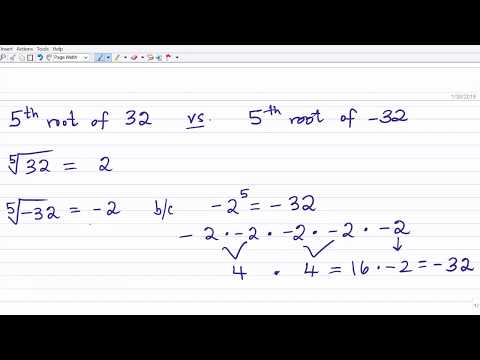 Insert Actions Tools Help
Page Width
1/30/2019
5th root of 32 vs. 5th root of -32
⁵√32 = 2
⁵√-32 = -2 b/c -2⁵ = -32
- 2 · -2 · -2 · -2 · -2
4 · 4 = 16 · -2 = -32